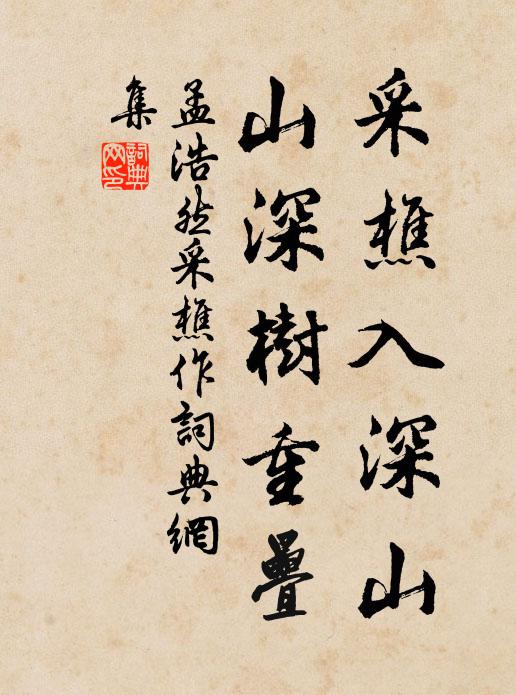 采樵入深山
山深樹重疊
孟浩然采樵作詞典網
集
詞典
网印